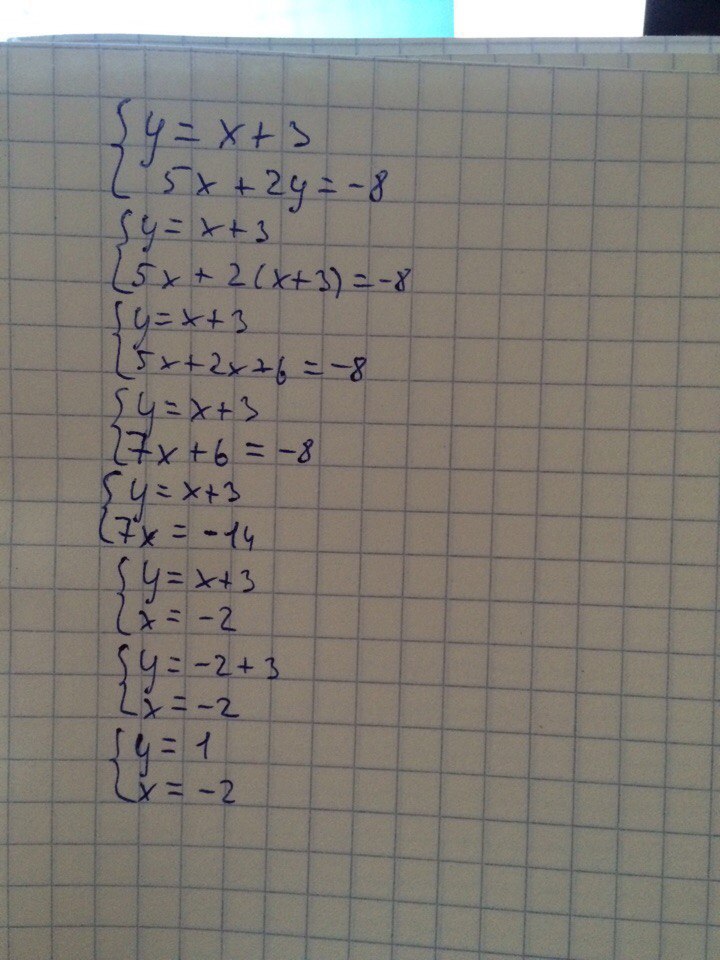 { y = x + 3
5x + 2y = -8
{ y = x + 3
5x + 2(x+3) = -8
{ y = x + 3
5x + 2x + 6 = -8
{ y = x + 3
7x + 6 = -8
{ y = x + 3
7x = -14
{ y = x + 3
x = -2
{ y = -2 + 3
x = -2
{ y = 1
x = -2